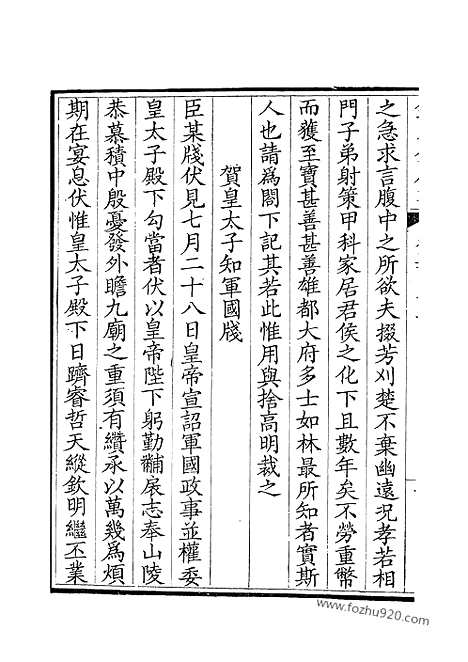 之急求言腹中之所欲夫掇芳刈楚不棄幽遠況孝若相
門子弟射策甲科家居君侯之化下且數年矣不勞重幣
而獲至寶甚善甚善雄都大府多士如林最所知者實斯
人也請為閤下記其若此惟用與捨高明裁之
賀皇太子知軍國牋
臣某牋伏見七月二十八日皇帝宣詔軍國政事並權委
皇太子殿下勾當者伏以皇帝陛下躬勤黼扆志奉山陵
恭慕積中殷憂發外瞻九廟之重須有纘承以萬幾為煩
期在宴息伏惟皇太子殿下日躋睿哲天縱欽明繼丕業
www.fozhu920.com